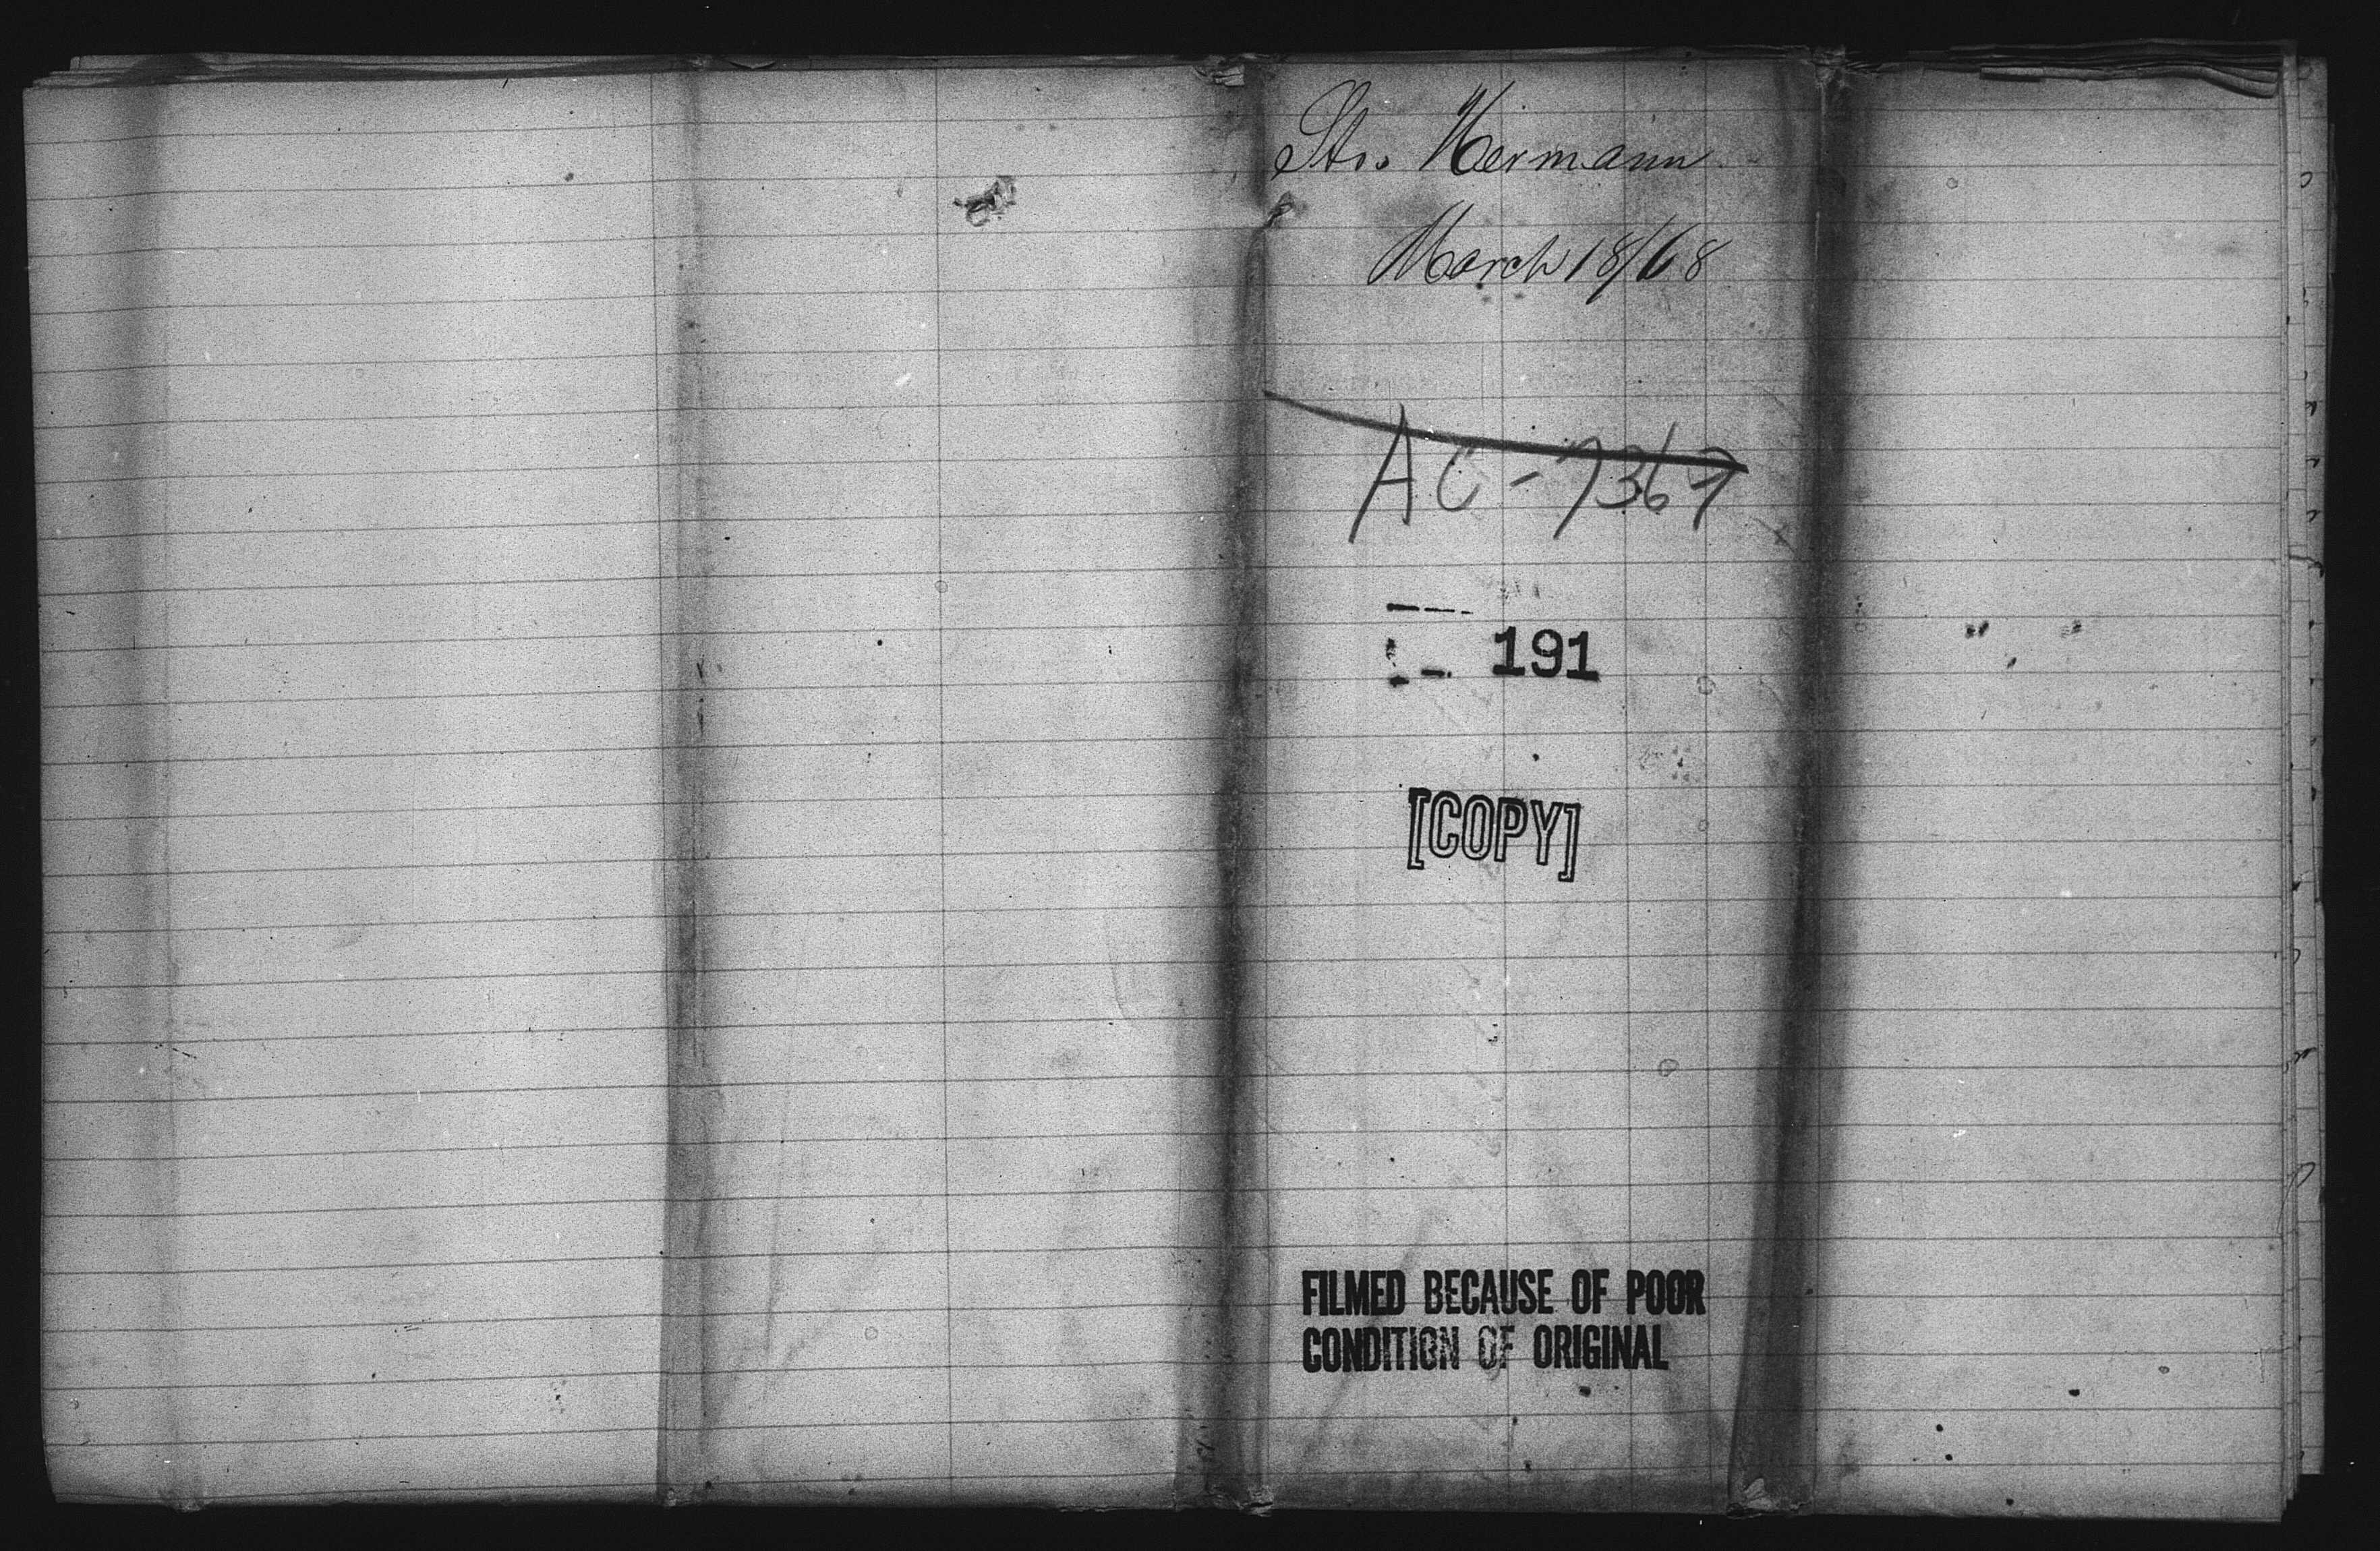 Str. Hermann
March 18/68
AC-7367
191
[COPY]
FILMED BECAUSE OF POOR
CONDITION OF ORIGINAL